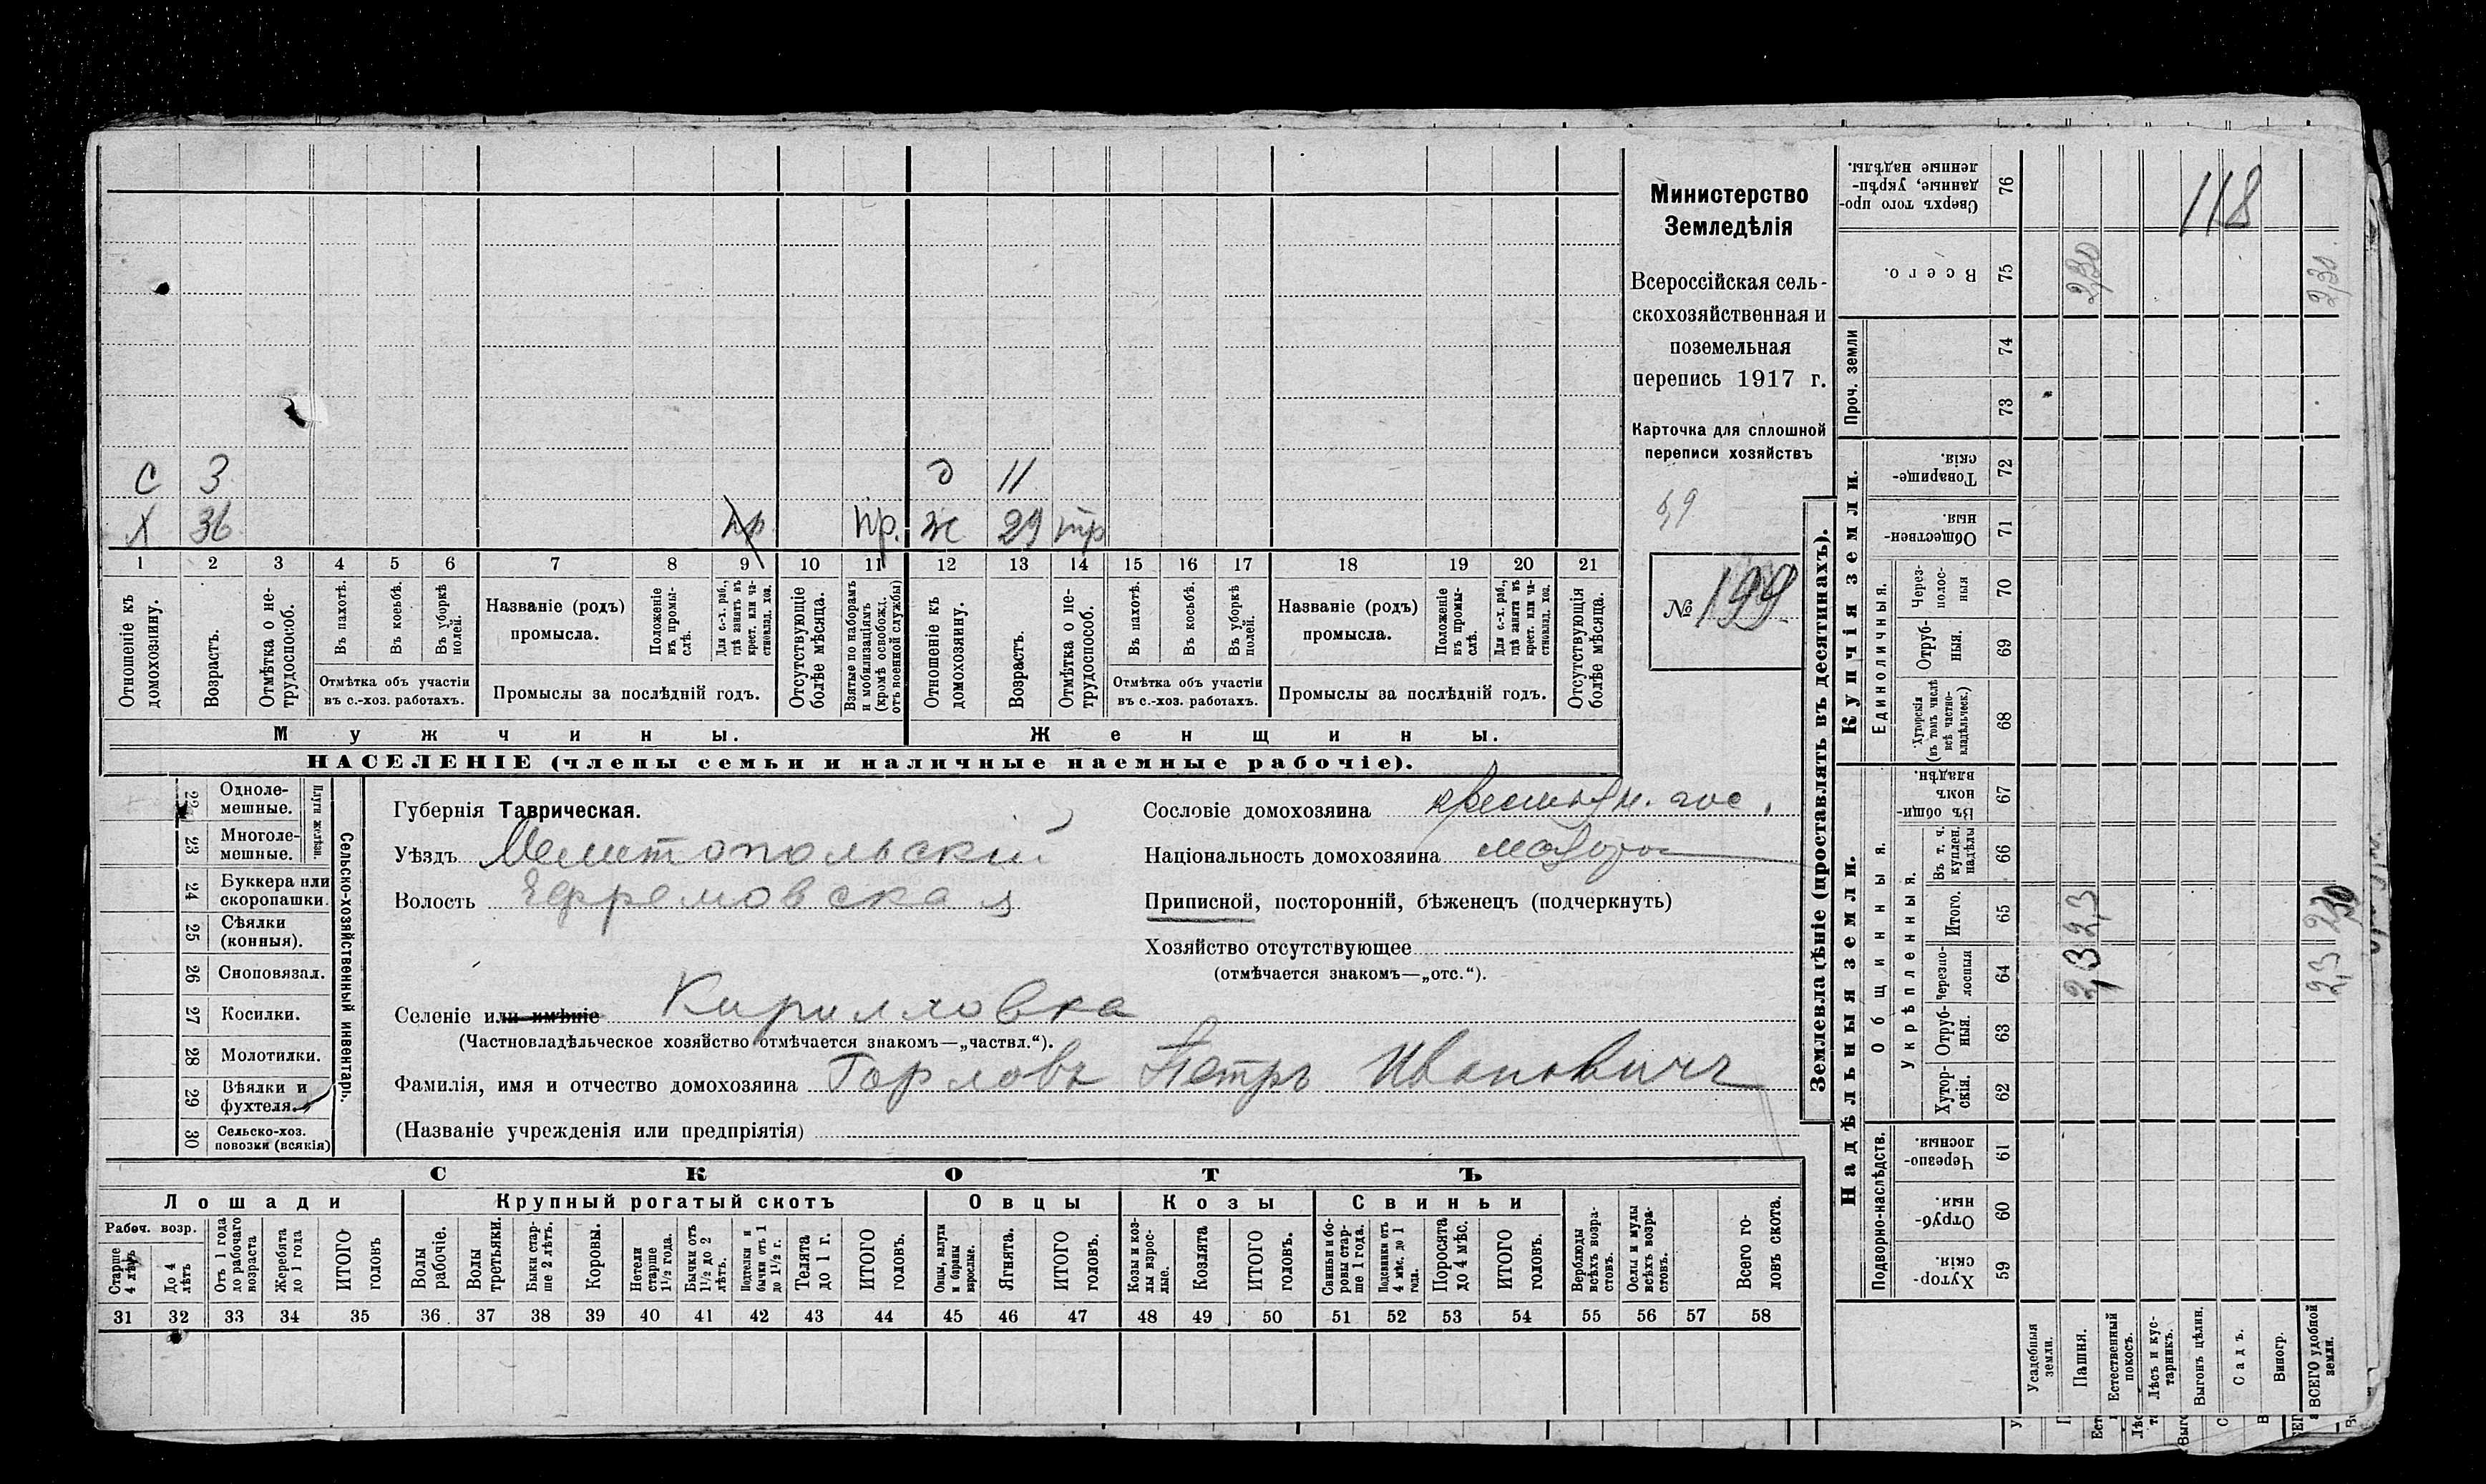 Министерство
Земледѣлія
Всероссійская сель-
скохозяйственная и
поземельная
перепись 1917 г.
Карточка для сплошной
переписи хозяйствъ
59
№ 199
С 3 д 11
Х 36 пр пр. ж 29 тр
1 2 3 4 5 6 7 8 9 10 11 12 13 14 15 16 17 18 19 20 21
Отношеніе къ домохозяину.
Возрастъ.
Отмѣтка о не-трудоспособ.
Въ пахотѣ.
Въ косьбѣ.
Въ уборкѣ полей.
Отмѣтка объ участіи
въ с.-хоз. работахъ.
Названіе (родъ)
промысла.
Положеніе въ промы-слѣ.
Для с.-х. раб., гдѣ занятъ въ крест. или ча-стновлад. хоз.
Промыслы за послѣдній годъ.
Отсутствующіе болѣе мѣсяца.
Взятые по наборамъ и мобилизаціямъ (кромѣ освобожд. отъ военной службы)
Отношеніе къ домохозяину.
Возрастъ.
Отмѣтка о не-трудоспособ.
Въ пахотѣ.
Въ косьбѣ.
Въ уборкѣ полей.
Отмѣтка объ участіи
въ с.-хоз. работахъ.
Названіе (родъ)
промысла.
Положеніе въ промы-слѣ.
Для с.-х. раб., гдѣ занята въ крест. или ча-стновлад. хоз.
Промыслы за послѣдній годъ.
Отсутствующія болѣе мѣсяца.
Мужчины. Женщины.
НАСЕЛЕНІЕ (члены семьи и наличные наемные рабочіе).
22 Одноле-мешные.
23 Многоле-мешные.
Плуги желѣзн.
24 Буккера или скоропашки.
25 Сѣялки (конныя).
26 Сноповязал.
27 Косилки.
28 Молотилки.
29 Вѣялки и фухтеля.
30 Сельско-хоз. повозки (всякія)
Сельско-хозяйственный инвентарь.
Губернія Таврическая.
Уѣздъ Мелитопольскій
Волость Ефремовская
Селеніе или имѣніе Кирилловка
(Частновладѣльческое хозяйство отмѣчается знакомъ—„частвл.“).
Фамилія, имя и отчество домохозяина Горловъ Петръ Ивановичъ
(Названіе учрежденія или предпріятія)
Сословіе домохозяина крестьян. гос.
Національность домохозяина малорос
Приписной, посторонній, бѣженецъ (подчеркнуть)
Хозяйство отсутствующее
(отмѣчается знакомъ—„отс.“).
СКОТЪ
Лошади
Крупный рогатый скотъ
Овцы
Козы
Свиньи
Рабоч. возр.
Старше 4 лѣтъ
До 4 лѣтъ
Отъ 1 года до рабочаго возраста
Жеребята до 1 года
ИТОГО головъ
Волы рабочіе.
Волы третьяки.
Быки стар-ше 2 лѣтъ.
Коровы.
Нетели старше 1½ года.
Бычки отъ 1½ до 2 лѣтъ.
Подтелки и бычки отъ 1 до 1½ г.
Телята до 1 г.
ИТОГО головъ.
Овцы, валухи и бараны взрослые.
Ягнята.
ИТОГО головъ.
Козы и коз-лы взрос-лые.
Козлята
ИТОГО головъ.
Свиньи и бо-ровы стар-ше 1 года.
Подсвинки отъ 4 мѣс. до 1 года.
Поросята до 4 мѣс.
ИТОГО головъ.
Верблюды всѣхъ возра-стовъ.
Ослы и мулы всѣхъ возра-стовъ.
Всего го-ловъ скота.
31 32 33 34 35 36 37 38 39 40 41 42 43 44 45 46 47 48 49 50 51 52 53 54 55 56 57 58
Землевладѣніе (проставлять въ десятинахъ).
Надѣльныя земли.
Купчія земли.
Проч. земли
Подворно-наслѣдств.
Общинныя.
Укрѣпленныя.
Единоличныя.
Сверхъ того про-данные, укрѣп-ленные надѣлы. 76
118
Всего. 75 2,30 2,30
74
73
Товарище-скія. 72
Обществен-ныя. 71
Через-полос-ныя 70
Отруб-ныя. 69
Хуторскія (въ томъ числѣ всѣ частно-владѣльческ.) 68
Въ общи-номъ владѣн. 67
Въ т. ч. куплен. надѣлы 66
Итого. 65 2,3 2,30
Черезпо-лосныя 64 2,3 2,3
Отруб-ныя. 63
Хутор-скія. 62
Черезпо-лосныя. 61
Отруб-ныя. 60
Хутор-скія. 59
Усадебныя земли.
Пашня.
Естественный покосъ.
Лѣсъ и кус-тарникъ.
Выгонъ цѣлин.
Садъ.
Виногр.
ВСЕГО удобной земли.